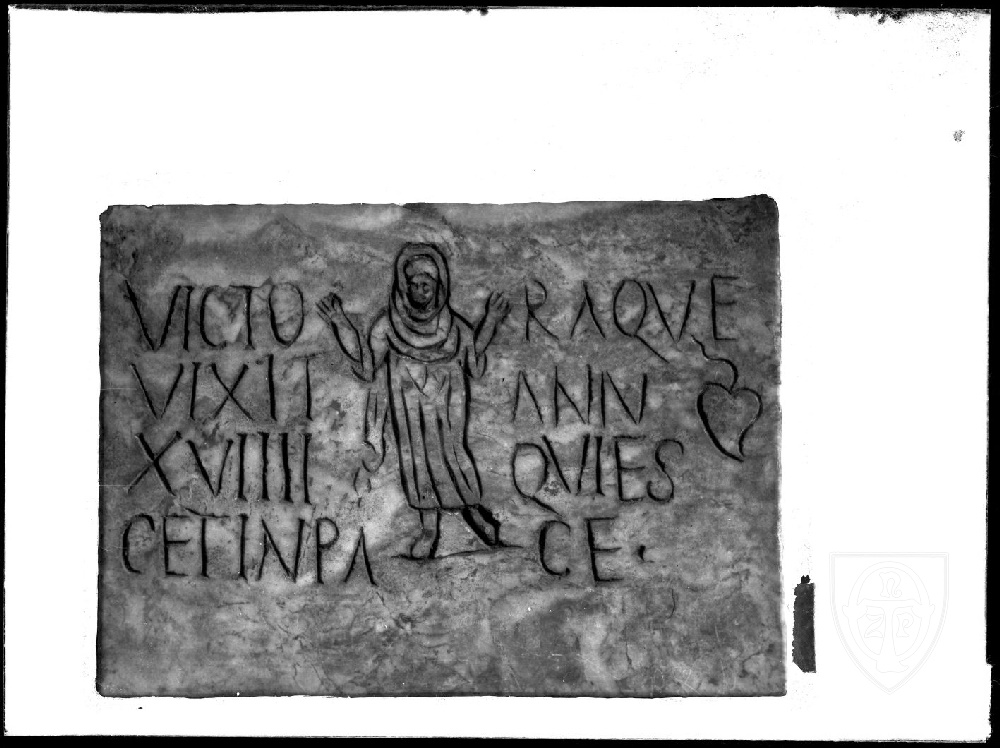 VICTORAQVE
VIXIT ANN
XVIIII QVIES
CETINPACE·